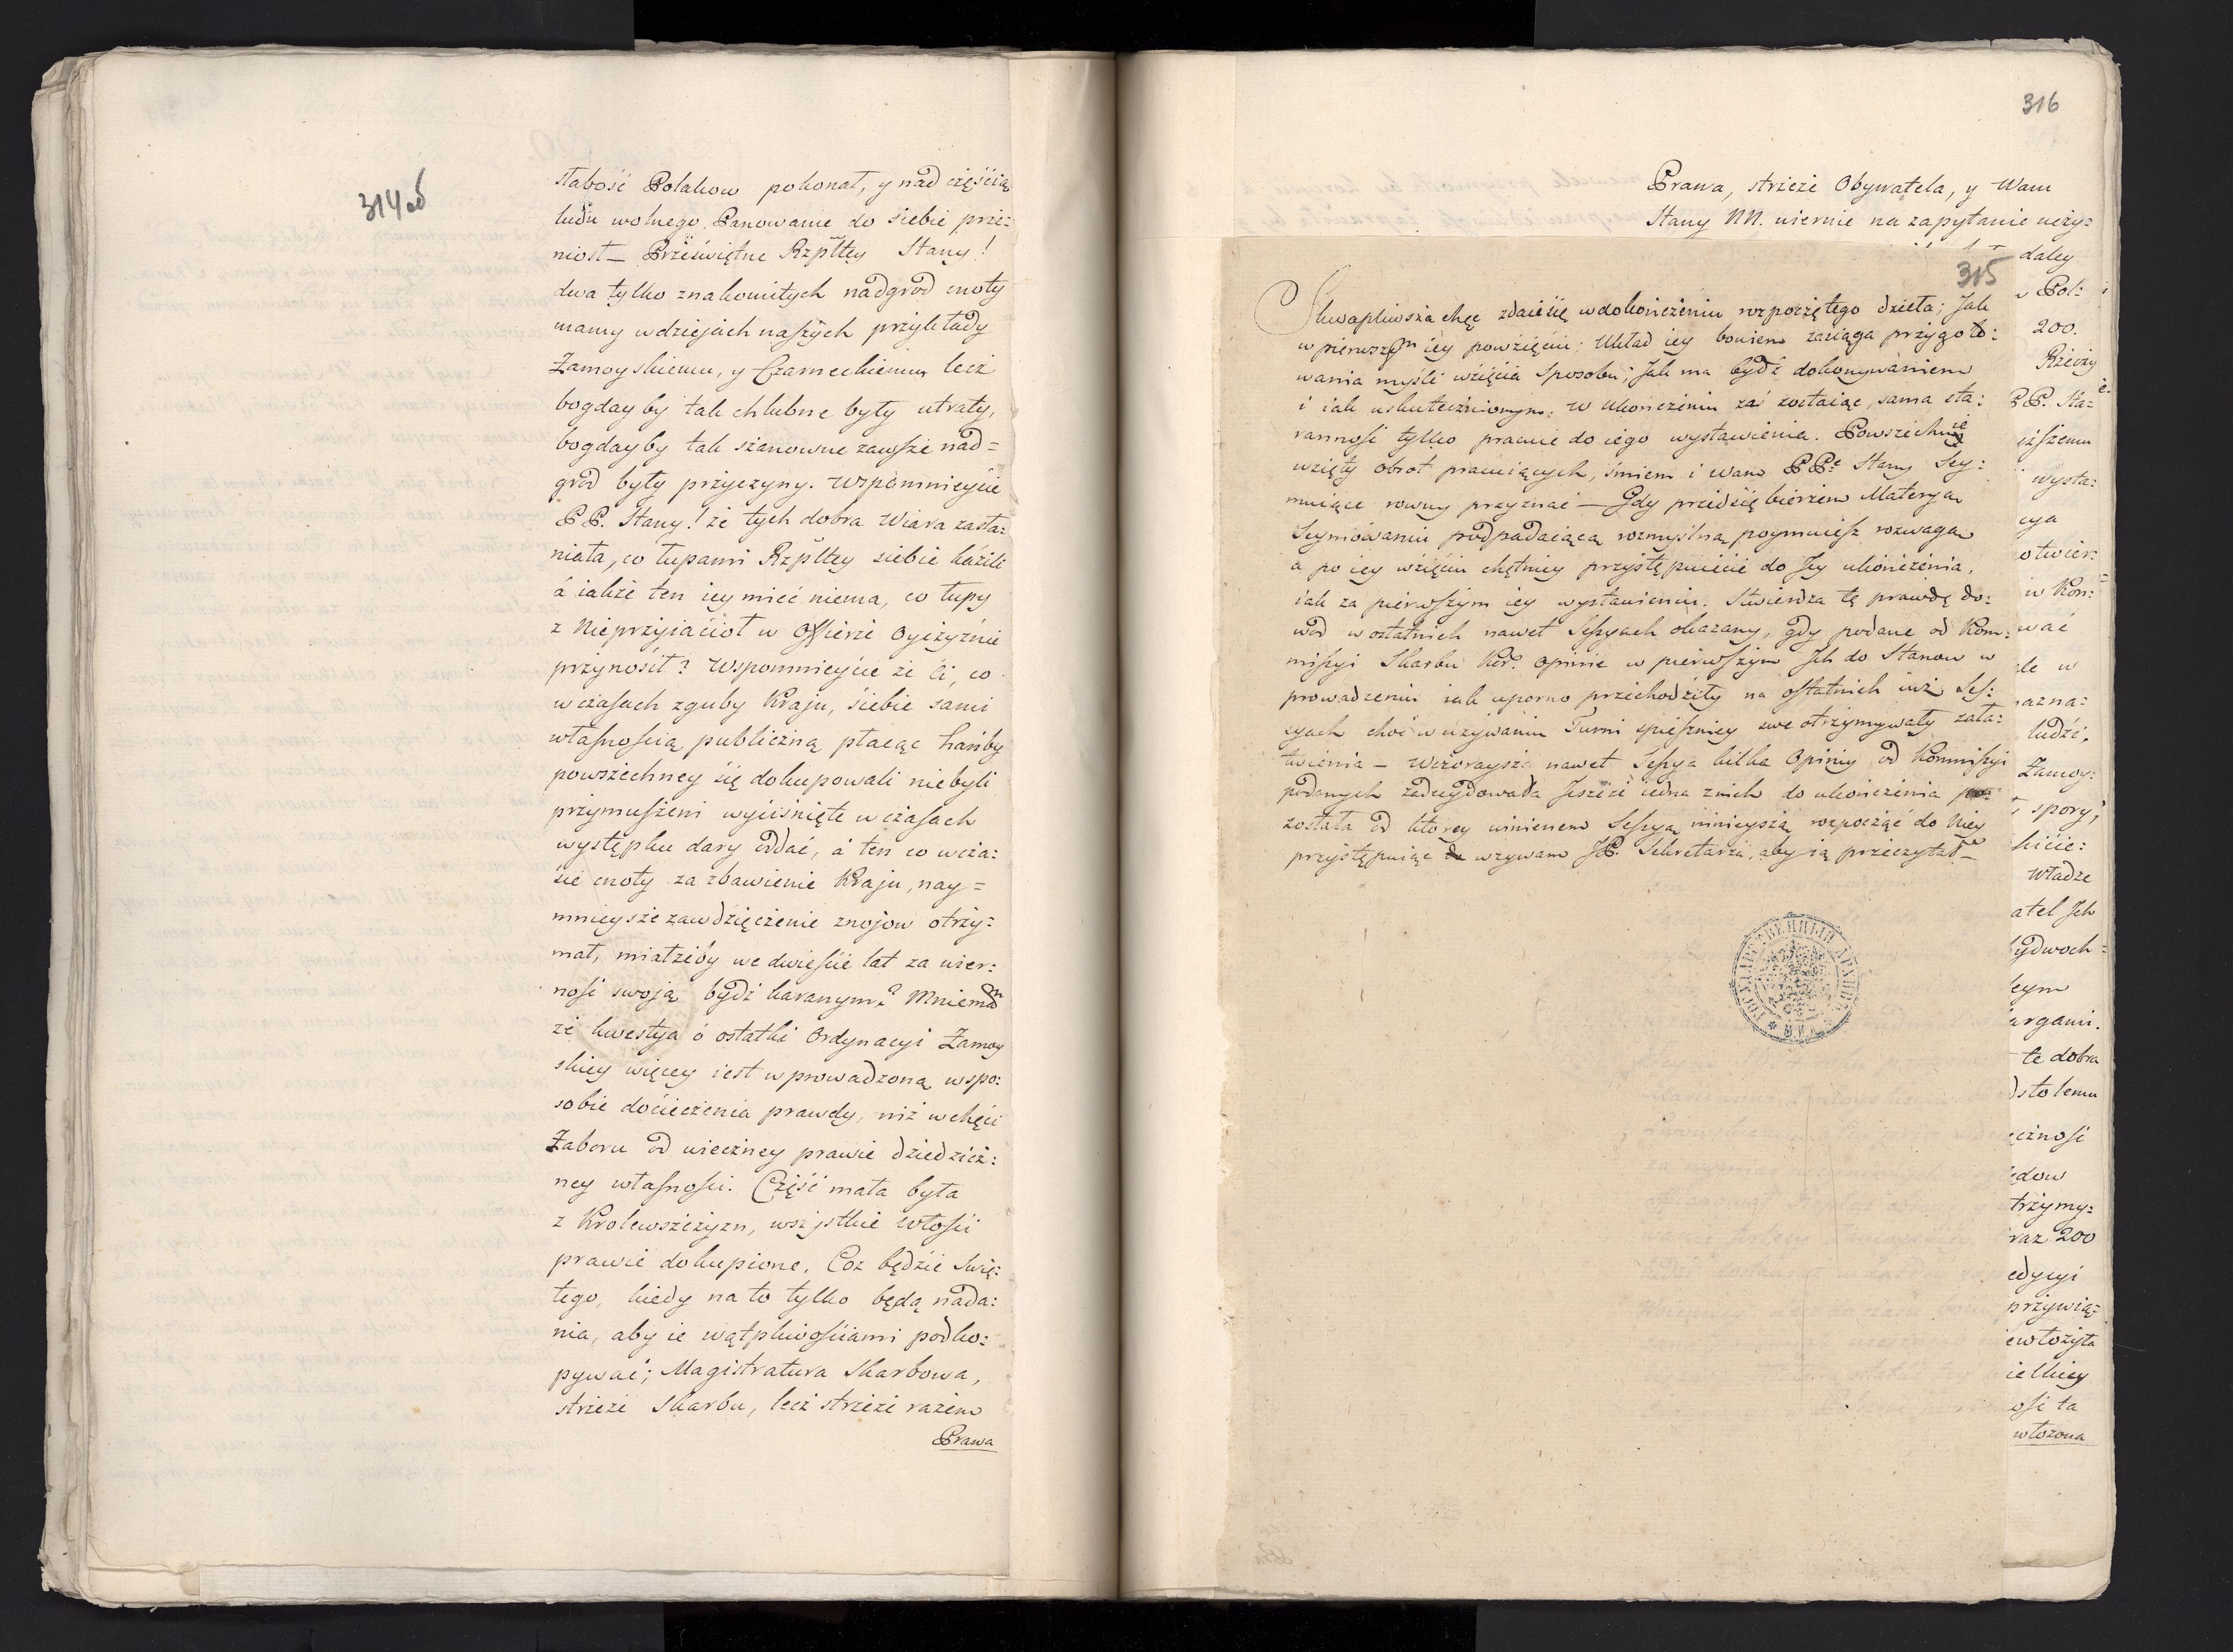 314 об
słabość Polakow pokonał, y nad częścią
ludu wolnego Panowanie do siebie prze:
niosł — Przeświętne Rzpltey Stany!
dwa tylko znakomitych nadgrod cnoty
mamy w dziejach naszych przykłady
Zamoyskiemu, y Czarneckiemu lecz
bogday by tak chlubne były utraty,
bogday by tak szanowne zawsze nad=
grod były przyczyny. Wspomnieycie
PP. Stany! że tych dobra Wiara zasła:
niała, co łupami Rzpltey siebie kazili
á iakże ten iey mieć niema, co łupy
z Nieprzyiacioł w Offierze Oyczyznie
przynosił? Wspomnieycie że ci, co
w czasach zguby Kraju, siebie sami
własnością publiczną płacąc hańby
powszechney się dokupowali niebyli
przymuszeni wyciśnięte w czasach
występku dary oddać, á ten co w cza:
sie cnoty za zbawienie Kraju, nay=
mnieysze zawdzięczenie znojow otrzy=
mał, miałżeby we dwieście lat za wier:
ność swoją bydź karanym? Mniemam
że kwestya ó ostatki Ordynacyi Zamoy
skiey więcey iest wprowadzoną w spo:
sobie docieczenia prawdy, niż w chęci
Zaboru od wieczney prawie dziedzicz:
ney własności. Część mała była
z Krolewszczyzn, wszystkie włości
prawie dokupione. Coż będzie Swię:
tego, kiedy na to tylko będą nada:
nia, aby ie wątpliwościami podko:
pywać; Magistratura Skarbowa,
strzeże Skarbu, lecz strzeże razem
Prawa
316
Prawa, strzeże Obywatela, y Wam
Stany NN. wiernie na zapytanie uczy=
315
Skwapliwsza chęć zdaie się w dokończeniu rozpoczętego dzieła; Jak
w pierwszym iey powzięciu; Układ iey bowiem zaciąga przygoto:
wania myśli wzięcia Sposobu, Jak ma bydź dokonywaniem
i iak uskutecznionym; w Ukończeniu zaś zostaiąc, sama sta:
ranność tylko pracuie do iego wystawienia. Powszechnie
wzięty obrot pracuiących, śmiem i Wam PPe Stany Sey:
muiące rowny przyznać — Gdy przedsię bierzem Materya
Seymowaniu podpadaiącą rozmyslną poymuiesz rozwagą
a po iey wzięciu chętniey przystępuiecie do Jey ukończenia,
iak za pierwszym iey wystawieniu. Stwierdza tę prawdę do:
wod w ostatnich nawet Sessyach okazany, gdy podane od Kom:
missyi Skarbu Kor. opinie w pierwszym Jch do Stanow w
prowadzeniu iak uporno przechodziły na ostatnich iuż Ses:
syach choć w używaniu Turni spieszniey swe otrzymywały zała:
twienia — Wczoraysza nawet Sessya kilka Opiniy od Kommissyi
podanych zadecydowała Jeszcze iedna z nich do ukończenia po=
została od ktorey winienem Sessyą ninieyszą rozpocząć do Niey
przystępuiąc wzywam JP. Sekretarza, aby ią przeczytał —
daley
Pol:
200.
Rzeczy
PP. Sta=
wysta:
cya
otwier:
w Kon:
wać
le w
ludzi,
Zamoy:
spory;
Władze
atel Jch
ydwoch=
argami.
te dobra
trzymy:
raz 200
edycyi
przywią:
ewłożyła
ielkiey
ości ta
włożona
ГОСУДАРСТВЕННЫЙ АРХИВ